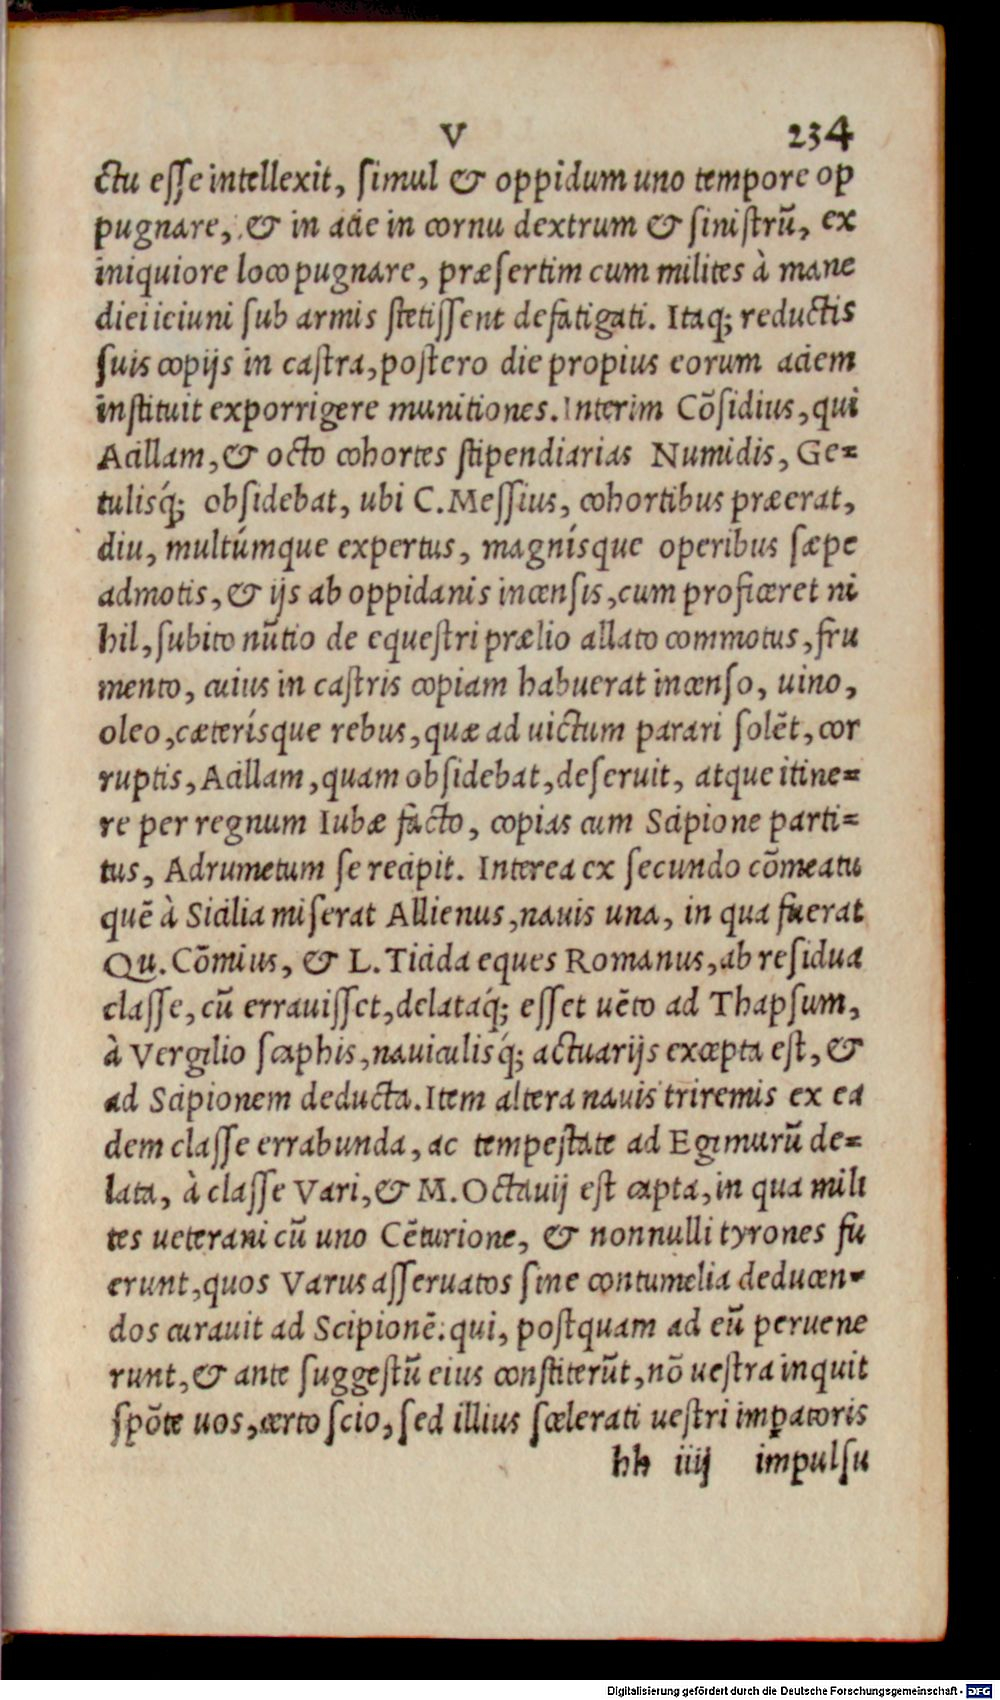 V 234
ctu esse intellexit, simul & oppidum uno tempore op
pugnare, & in acie in cornu dextrum & sinistrũ, ex
iniquiore loco pugnare, præsertim cum milites à mane
diei ieiuni sub armis stetissent defatigati. Itaq; reductis
suis copijs in castra, postero die propius eorum aciem
instituit exporrigere munitiones. Interim Cõsidius, qui
Acillam, & octo cohortes stipendiarias Numidis, Ge=
tulisq́; obsidebat, ubi C. Messius, cohortibus præerat,
diu, multúmque expertus, magnísque operibus sæpe
admotis, & ijs ab oppidanis incensis, cum proficeret ni
hil, subito nũtio de equestri prælio allato commotus, fru
mento, cuius in castris copiam habuerat incenso, uino,
oleo, cæterísque rebus, quæ ad uictum parari solẽt, cor
ruptis, Acillam, quam obsidebat, deseruit, atque itine=
re per regnum Iubæ facto, copias cum Scipione parti=
tus, Adrumetum se recipit. Interea ex secundo cõmeatu
quẽ à Sicilia miserat Allienus, nauis una, in qua fuerat
Qu. Cõmius, & L. Ticida eques Romanus, ab residua
classe, cũ errauisset, delataq́; esset uẽto ad Thapsum,
à Vergilio scaphis, nauiculisq́; actuarijs excepta est, &
ad Scipionem deducta. Item altera nauis triremis ex ea
dem classe errabunda, ac tempestate ad Egimurũ de=
lata, à classe Vari, & M. Octauij est capta, in qua mili
tes ueterani cũ uno Cẽturione, & nonnulli tyrones fu
erunt, quos Varus asseruatos sine contumelia deducen=
dos curauit ad Scipionẽ: qui, postquam ad eũ peruene
runt, & ante suggestũ eius constiterũt, nõ uestra inquit
spõte uos, certo scio, sed illius scelerati uestri imꝑatoris
hh iiij impulsu
Digitalisierung gefördert durch die Deutsche Forschungsgemeinschaft - DFG